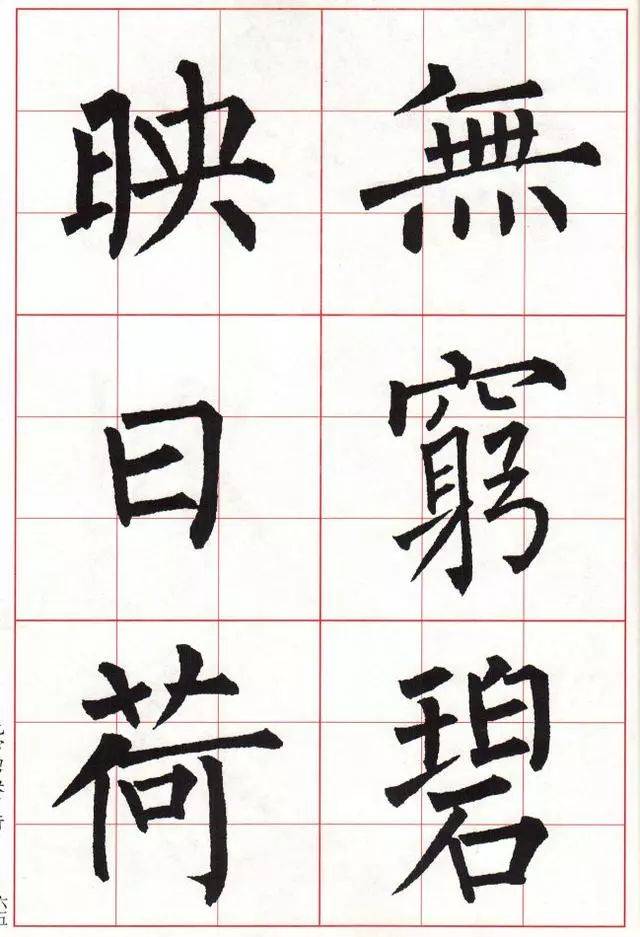 無窮碧
映日荷
六五